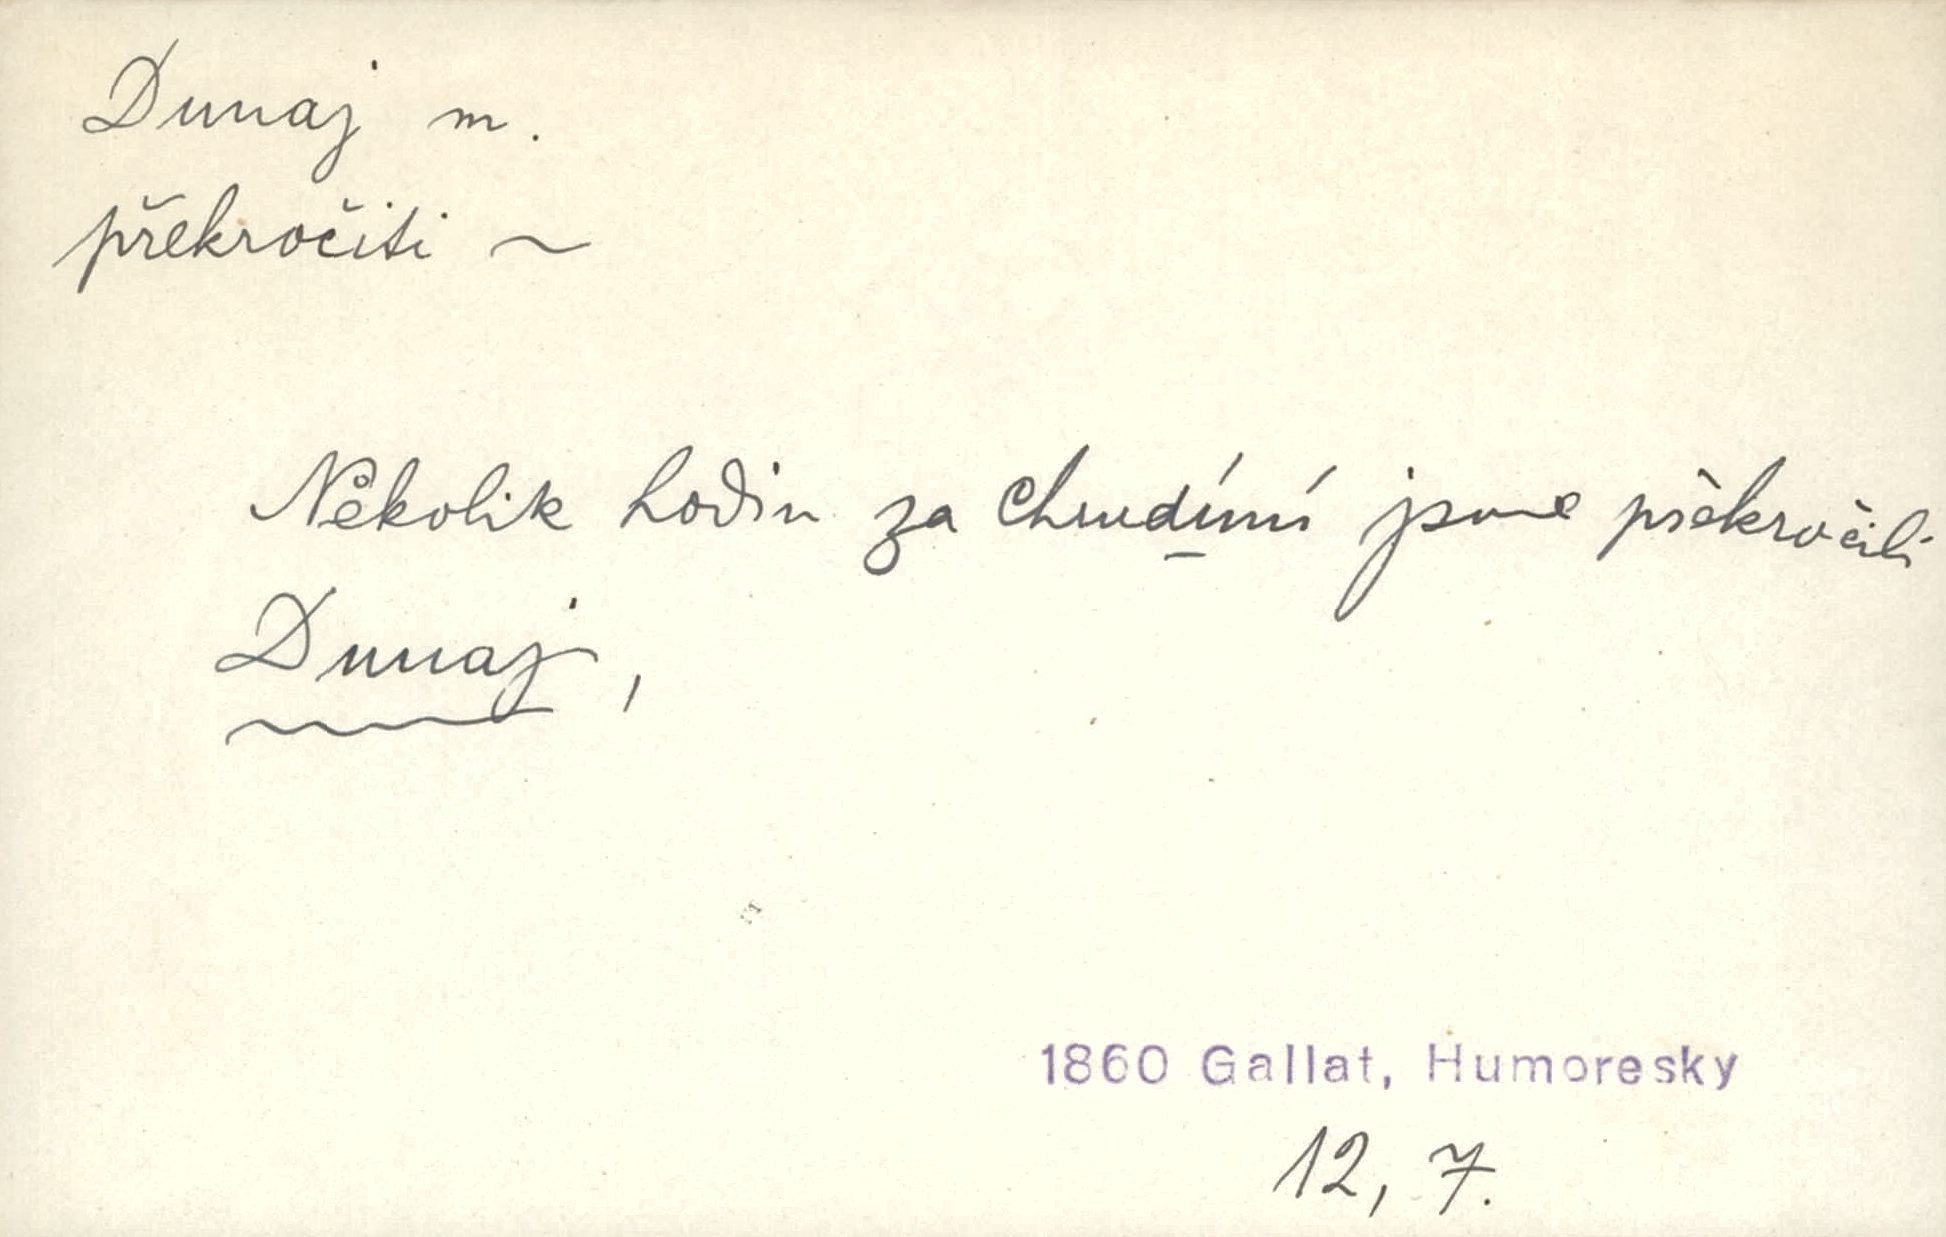 Dunaj m.
překročiti ~
Několik hodin za Chrudímí jsme překročili
Dunaj,
1860 Gallat, Humoresky
12, 7.